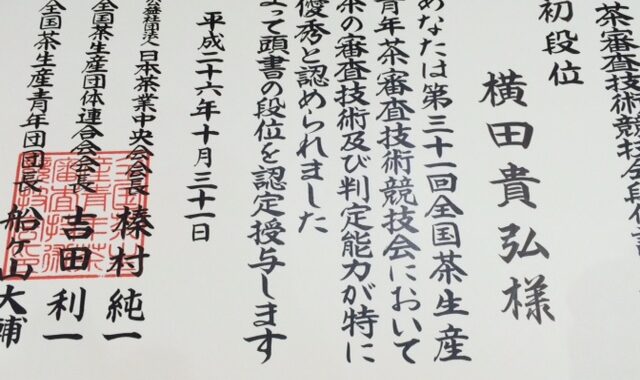 茶審査技術競技会段位
初段位
横田貴弘様
あなたは第三十一回全国茶生産
青年茶審査技術競技会において
茶の審査技術及び判定能力が特に
優秀と認められました
よって頭書の段位を認定授与します
平成二十六年十月三十一日
公益社団法人日本茶業中央会会長 榛村純一
全国茶生産団体連合会会長 吉田利一
全国茶生産青年団団長 船ヶ山大輔